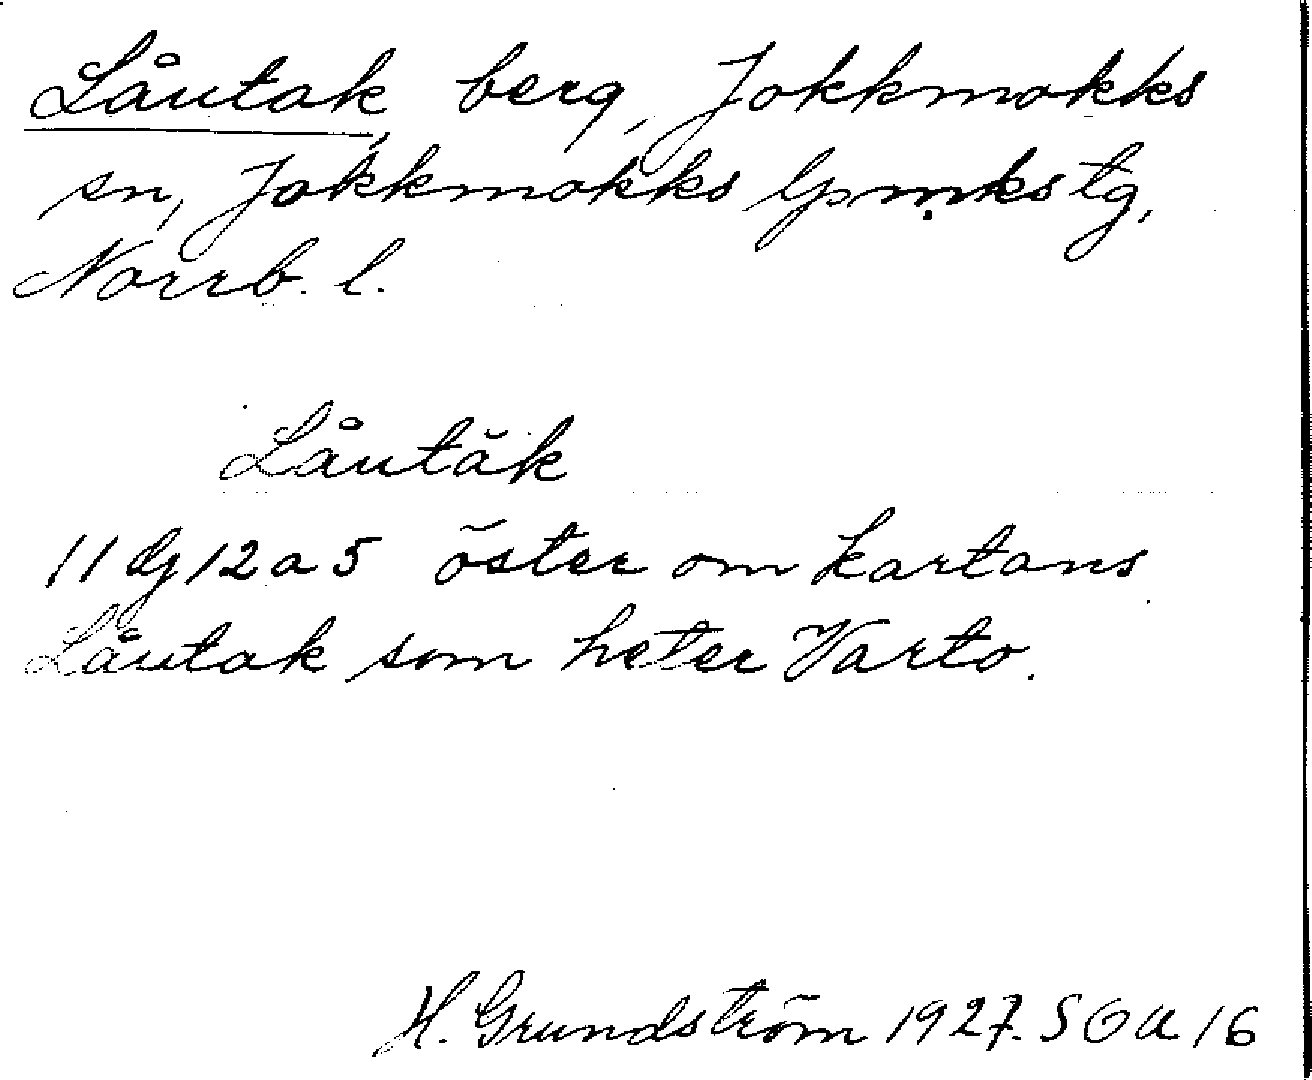 Låutak, berg, Jokkmokks
sn, Jokkmokks lpmkstg,
Norrb. l.
Låutăk
11 dg 12 a 5 öster om kartans
Låutak som heter Varto.
H. Grundström 1927. SOA 16